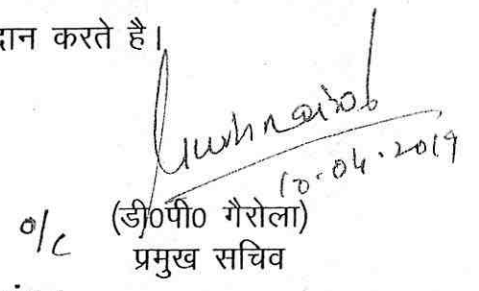 दान करते है।
10.04.2019
o/c (डी०पी० गैरोला)
प्रमुख सचिव